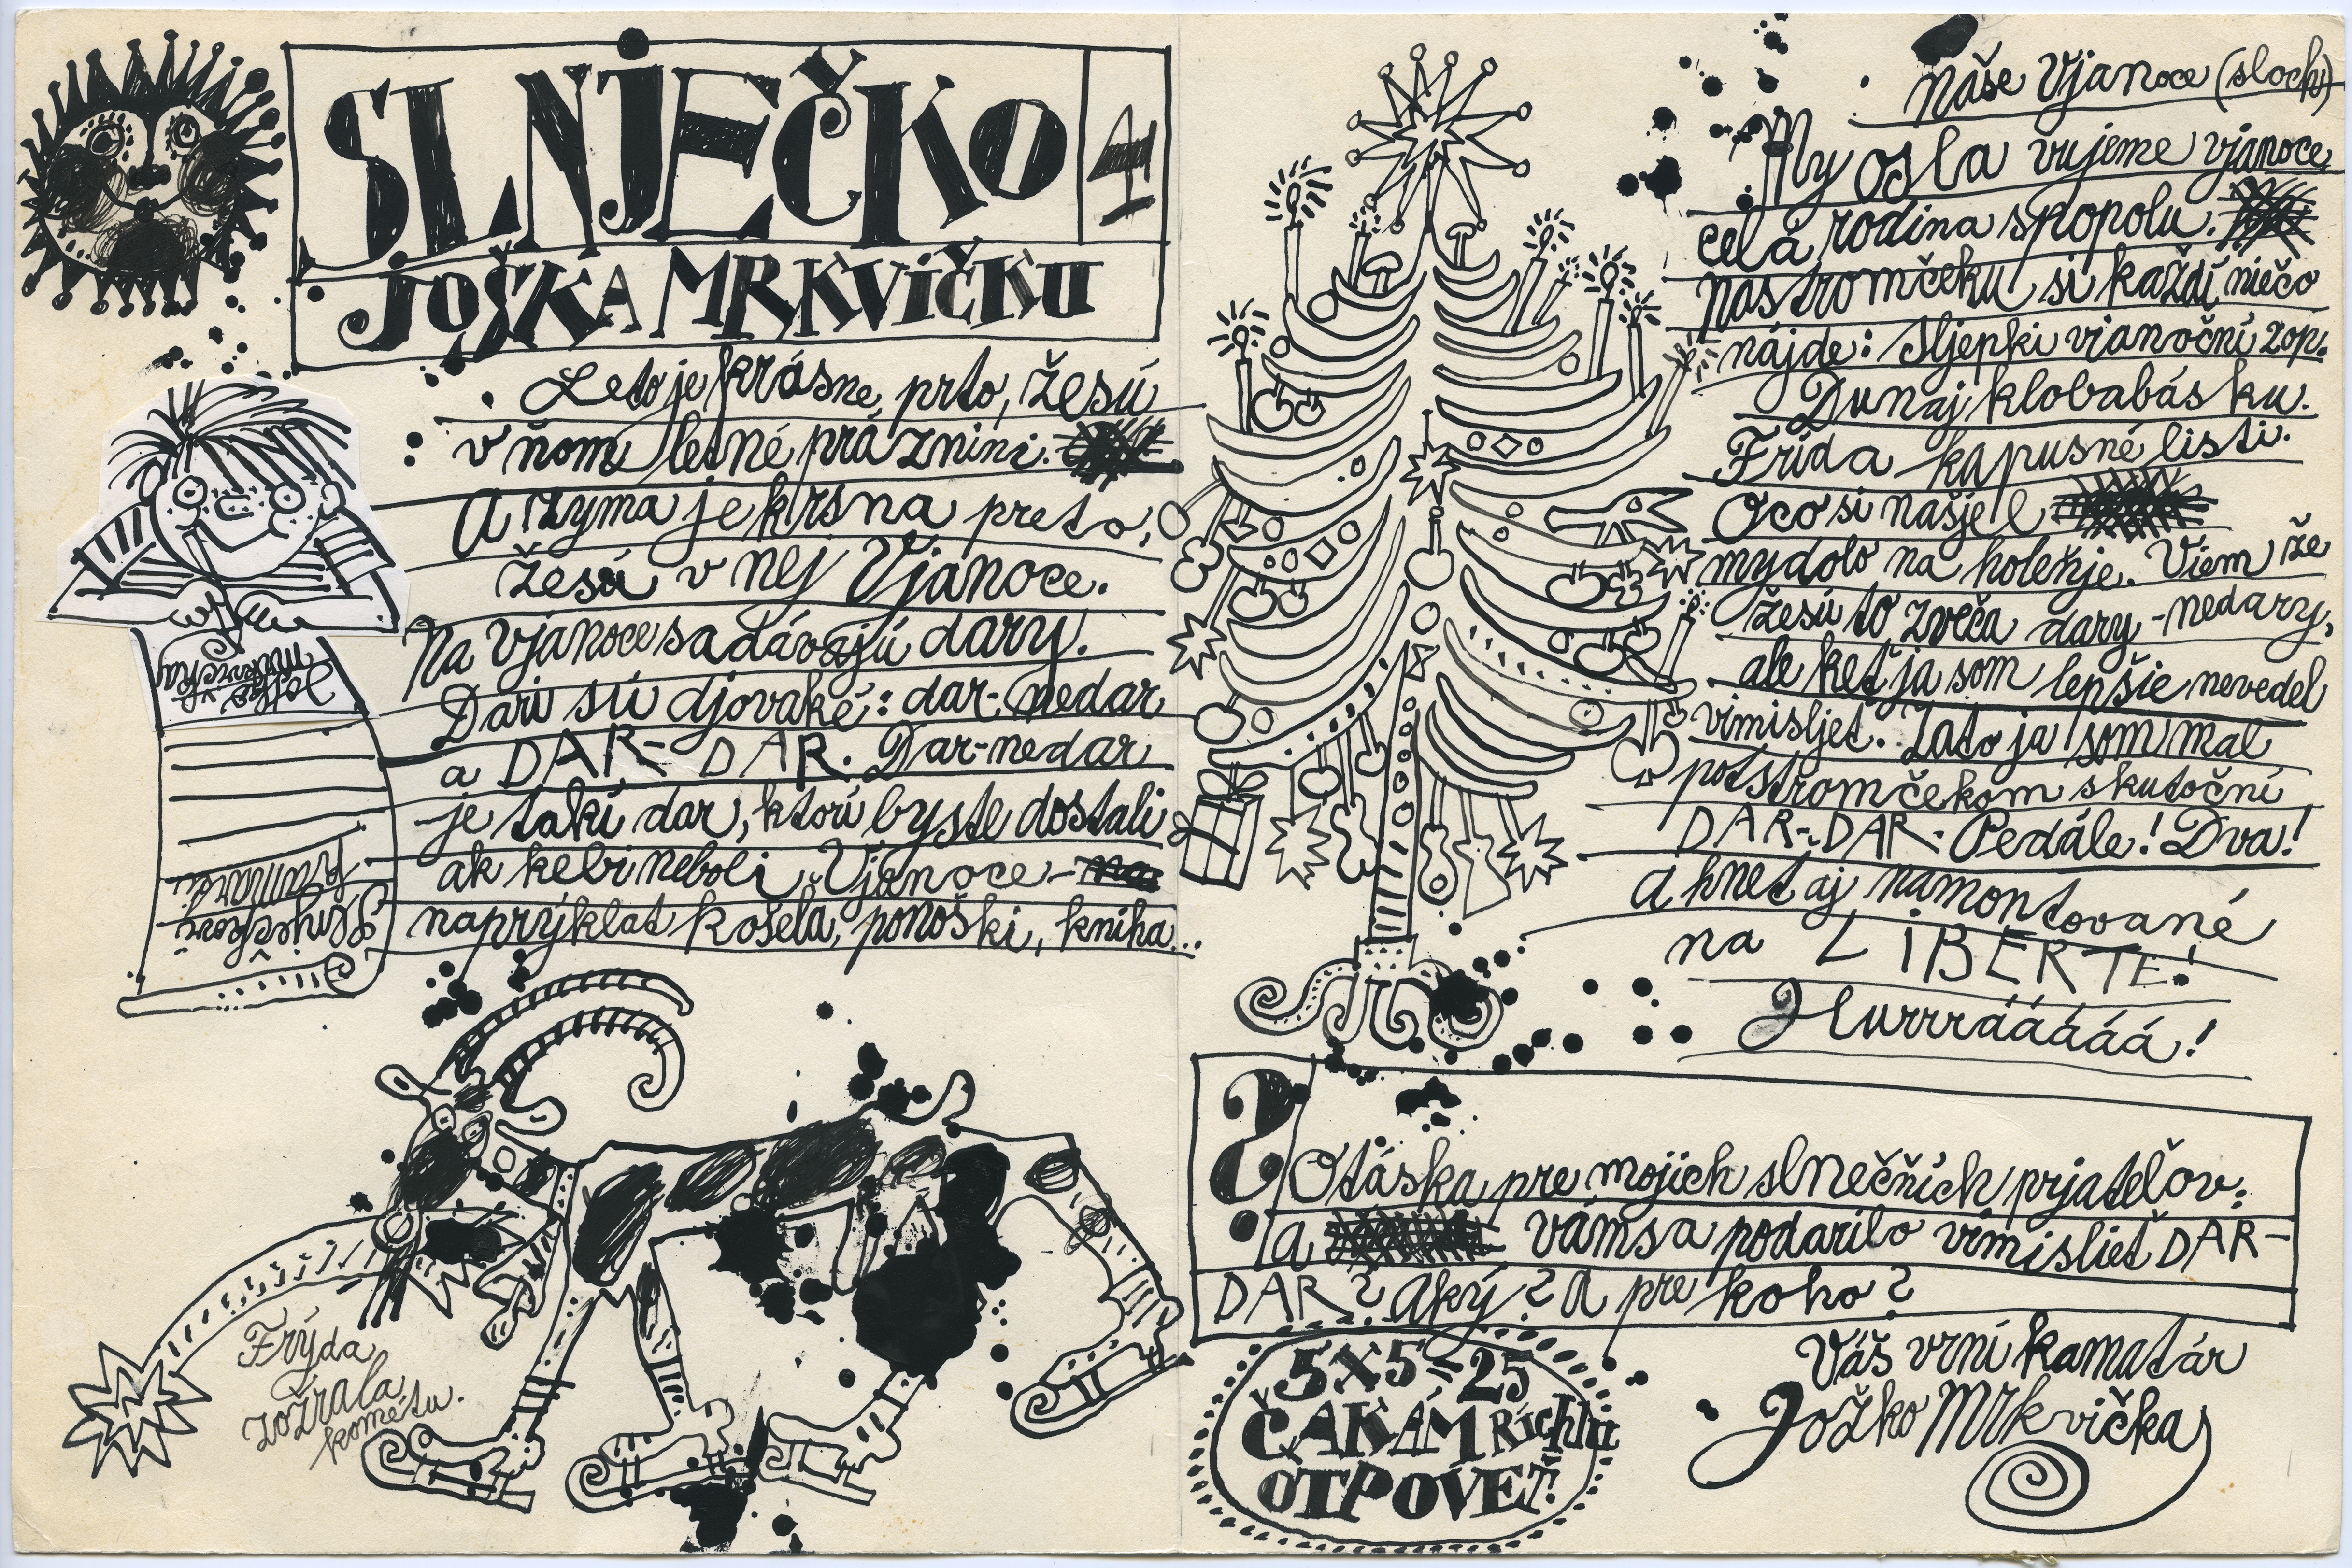 SLNJEČKO 4
JOŠKA MRKVIČKU
Leto je krásne prto, žesú
v ňom letné práznini.
A zyma je krsna preto,
žesú v nej Vjanoce.
Na Vjanoce sa dávajú dary.
Dari sú djovaké: dar-nedar
a DAR-DAR. Dar-nedar
je takí dar, ktorí byste dostali
ak kebi neboli Vjanoce -
naprýklat košela, ponoški, kniha...
Joško v.
Mrkvička
kamarát
Frýda
zožrala
kométu.
Náše Vjanoce (sloch)
My osla vujeme vjanoce
celá rodina spopolu.
Nastromčeku si každí niečo
nájde: Sljepki vianoční zop.
Dunaj klobabásku.
Frida kapusné listi.
Oco si našjel
mydolo na holeňje. Viem že
žesú to zveča dary-nedary,
ale keť ja som lepšie nevedel
vimisljet. Zato ja som mal
potstromčekom skutoční
DAR-DAR: Pedále! Dva!
a hneť aj namontované
na LIBERTE!
Hurrrááááá!
?
Otáska pre mojich slnečních prjateľov:
a vám sa podarilo vimisliet DAR-
DAR? Aký? A pre koho?
5x5=25
ČAKÁM Richlu
OTPOVEŤ!
Váš vrní kamatár
Jožko Mrkvička